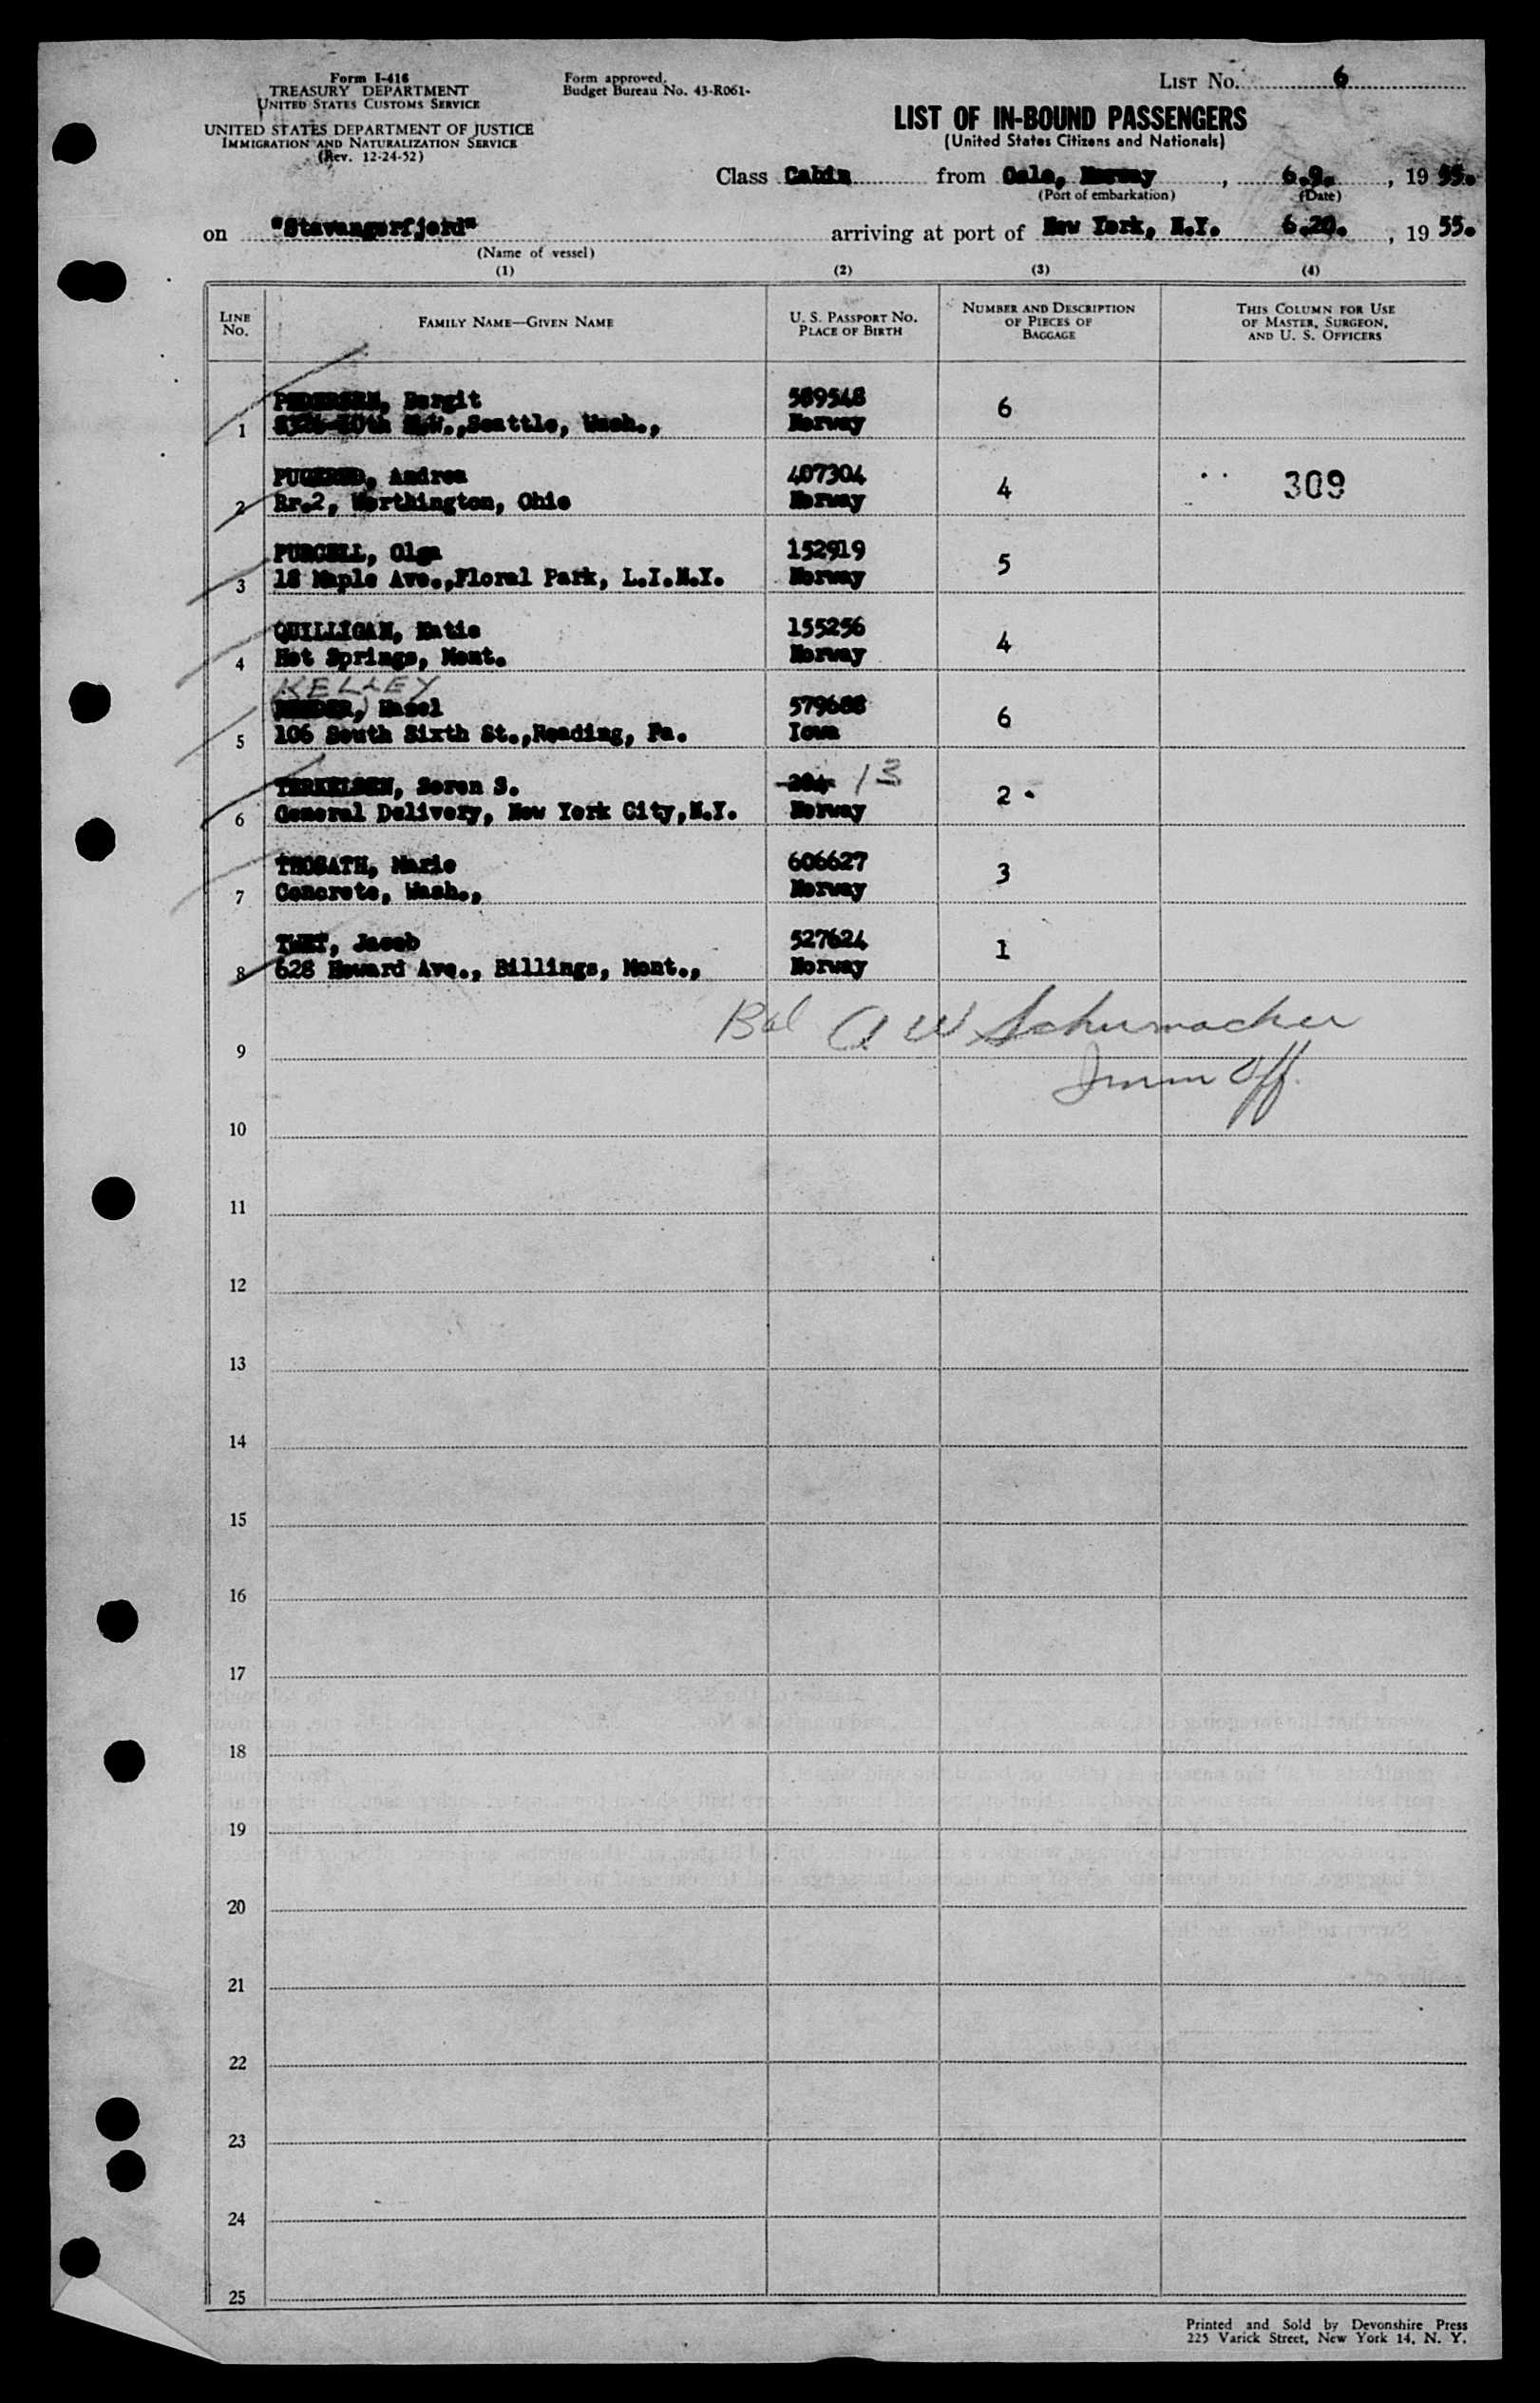 Form I-416
TREASURY DEPARTMENT
UNITED STATES CUSTOMS SERVICE
UNITED STATES DEPARTMENT OF JUSTICE
IMMIGRATION AND NATURALIZATION SERVICE
(Rev. 12-24-52)
Form approved.
Budget Bureau No. 43-R061-
LIST No. 6
LIST OF IN-BOUND PASSENGERS
(United States Citizens and Nationals)
Class Cabin from Oslo, Norway, 6.9., 1955.
(Port of embarkation) (Date)
on "Stavangerfjord" arriving at port of New York, N.Y. 6.20., 1955.
(Name of vessel)
(1) (2) (3) (4)
LINE No. FAMILY NAME—GIVEN NAME U. S. PASSPORT No. PLACE OF BIRTH NUMBER AND DESCRIPTION OF PIECES OF BAGGAGE THIS COLUMN FOR USE OF MASTER, SURGEON, AND U. S. OFFICERS
PEDERSEN, Borgit 589548
1 N.W., Seattle, Wash., Norway 6
Andrea 407304
2 Rr.2, Worthington, Ohio Norway 4 309
PURCELL, Olga 152919
3 18 Maple Ave., Floral Park, L.I.N.Y. Norway 5
QUILLIGAN, Katie 155256
4 Hot Springs, Mont. Norway 4
KELLEY
Hazel 579688
5 106 South Sixth St., Reading, Pa. Iowa 6
TERKELSEN, Soren S. 13
6 General Delivery, New York City, N.Y. Norway 2
THOSATH, Marie 606627
7 Concrete, Wash., Norway 3
TWET, Jacob 527624
8 628 Howard Ave., Billings, Mont., Norway 1
Bal A W Schumacher
9
Imm Off.
10
11
12
13
14
15
16
17
18
19
20
21
22
23
24
25
Printed and Sold by Devonshire Press
225 Varick Street, New York 14, N. Y.